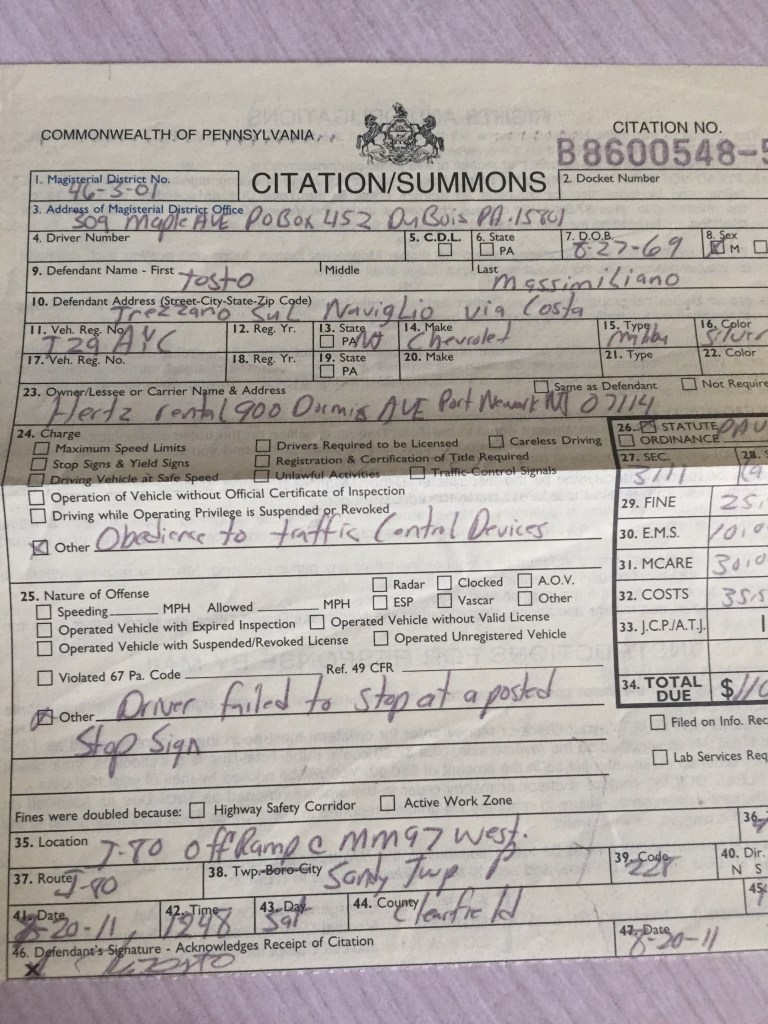 COMMONWEALTH OF PENNSYLVANIA
CITATION NO.
B8600548-5
1. Magisterial District No.
46-3-01
CITATION/SUMMONS
2. Docket Number
3. Address of Magisterial District Office
309 Maple AVE PO Box 452 DuBois PA. 15801
4. Driver Number
5. C.D.L.
6. State
PA
7. D.O.B.
8-27-69
8. Sex
M
9. Defendant Name - First
Tosto
Middle
Last
Massimiliano
10. Defendant Address (Street-City-State-Zip Code)
Trezzano Sul Naviglio via Costa
11. Veh. Reg. No.
T29 AYC
12. Reg. Yr.
13. State
PA NJ
14. Make
Chevrolet
15. Type
Malibu
16. Color
Silver
17. Veh. Reg. No.
18. Reg. Yr.
19. State
PA
20. Make
21. Type
22. Color
23. Owner/Lessee or Carrier Name & Address
Same as Defendant
Not Require
Hertz rental 900 Doremis AVE Port Newark NJ 07114
24. Charge
Maximum Speed Limits
Drivers Required to be Licensed
Careless Driving
Stop Signs & Yield Signs
Registration & Certification of Title Required
Driving Vehicle at Safe Speed
Unlawful Activities
Traffic-Control Signals
Operation of Vehicle without Official Certificate of Inspection
Driving while Operating Privilege is Suspended or Revoked
Other Obedience to traffic Control Devices
26. STATUTE
ORDINANCE
27. SEC.
3111
28.
29. FINE
25.
30. E.M.S.
10.0
31. MCARE
30.0
32. COSTS
35.5
33. J.C.P./A.T.J.
34. TOTAL DUE
$110
25. Nature of Offense
Radar
Clocked
A.O.V.
Speeding MPH Allowed MPH
ESP
Vascar
Other
Operated Vehicle with Expired Inspection
Operated Vehicle without Valid License
Operated Vehicle with Suspended/Revoked License
Operated Unregistered Vehicle
Violated 67 Pa. Code
Ref. 49 CFR
Other Driver failed to stop at a posted
Stop Sign
Filed on Info. Rec
Lab Services Req
Fines were doubled because:
Highway Safety Corridor
Active Work Zone
35. Location
I-80 Off Ramp @ MM97 West.
36.
37. Route
I-80
38. Twp.-Boro-City
Sandy Twp
39. Code
228
40. Dir.
N S
41. Date
8-20-11
42. Time
1848
43. Day
Sat
44. County
Clearfield
45
46. Defendant's Signature - Acknowledges Receipt of Citation
X
47. Date
8-20-11